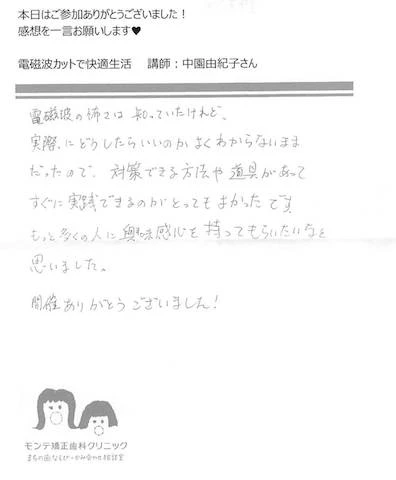 本日はご参加ありがとうございました！
感想を一言お願いします♥
電磁波カットで快適生活　講師：中園由紀子さん
電磁波の怖さは知っていたけれど、
実際にどうしたらいいのかよくわからないまま
だったので、対策できる方法や道具があって
すぐに実践できるのがとってもよかったです
もっと多くの人に興味感心を持ってもらいたいなと
思いました。
開催ありがとうございました！
モンテ矯正歯科クリニック
まちの歯ならび・かみ合わせ相談室